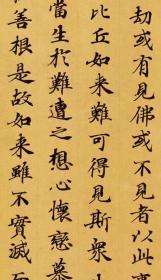 劫或有見佛或不見者以此事
比丘如來難可得見斯衆生
當生於難遭之想心懷戀慕
善根是故如來雖不實滅而